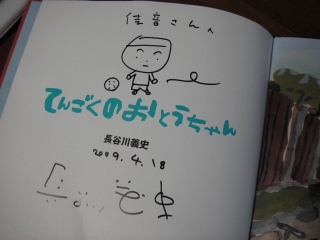 佳音さんへ
てんごくのおとうちゃん
長谷川義史
2009.4.18